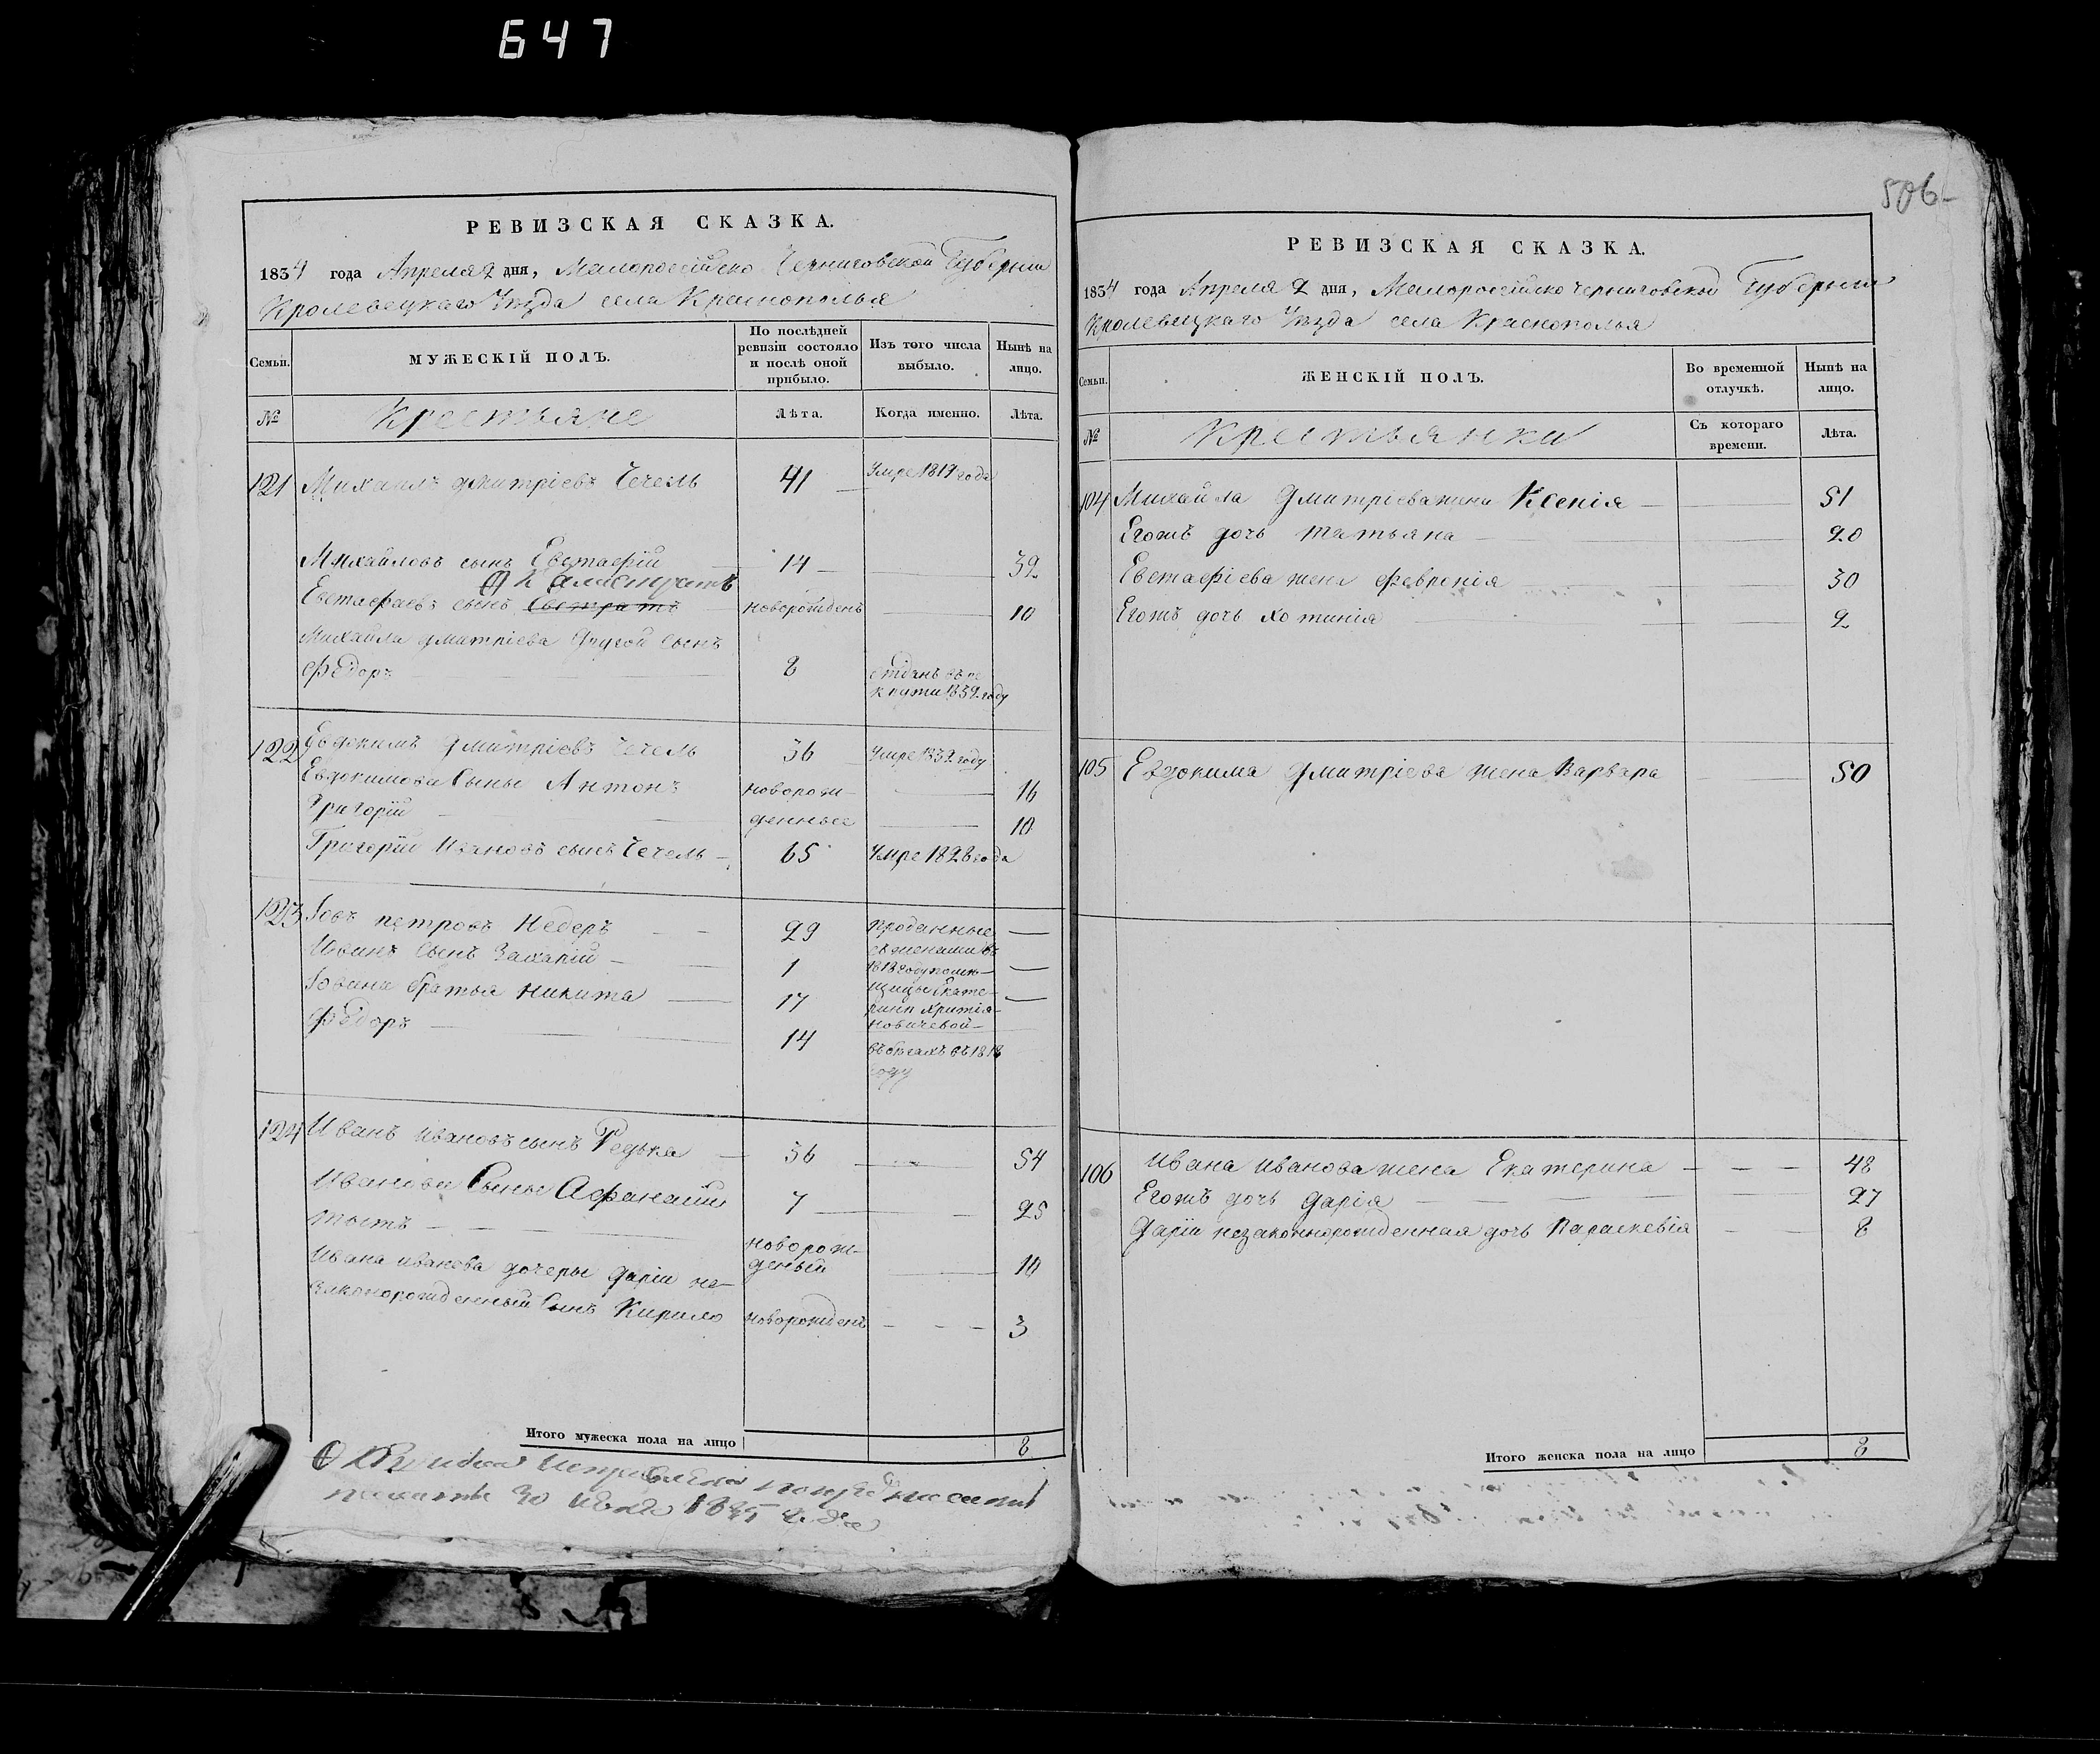 647
РЕВИЗСКАЯ СКАЗКА.
1834 года Апреля 2 дня, Малороссійско Черниговской Губерніи
Кролевецкаго Уѣзда села Краснополья
Семьи.
МУЖЕСКІЙ ПОЛЪ.
По послѣдней ревизіи состояло и послѣ оной прибыло.
Изъ того числа выбыло.
Нынѣ на лицо.
№ Крестьяне Лѣта. Когда именно. Лѣта.
121 Михаилъ Дмитріевъ Чечель 41 Умре 1819 года
Михайловъ сынъ Евстафій 14 32
Калистратъ
Евстафіевъ сынъ новорожденъ 10
Михайла Дмитріева другой сынъ
Фёдоръ 8 отданъ въ ре
круты 1832 году
122 Евдокимъ Дмитріевъ Чечель 36 Умре 1832 году
Евдокимова сыны Антонъ новорож- 16
Григорій денные 10
Григорій Ивановъ сынъ Чечель 65 Умре 1828 года
123 Іовъ Петровъ Недеръ 29 Проданные
Іовинъ сынъ Захарій 1 съ женами въ
1818 году помѣ-
Іовина братья Никита 17 щицы Екате-
рини Христіа-
Фёдоръ 14 новичевой
въ бѣгахъ въ 1818
году
124 Иванъ Ивановъ сынъ Редька 36 54
Иванови сыны Афанасій 7 25
новорож-
деный 10
Ивана Иванова дочеры Даріи не-
законнорожденный сынъ Кирило новорожденъ 3
Итого мужеска пола на лицо 8
506
РЕВИЗСКАЯ СКАЗКА.
1834 года Апреля 2 дня, Малороссійско Черниговской Губерніи
Кролевецкаго Уѣзда села Краснополья
Семьи.
ЖЕНСКІЙ ПОЛЪ.
Во временной отлучкѣ.
Нынѣ на лицо.
№ Крестьянки Съ котораго времени. Лѣта.
104 Михайла Дмитріева жена Ксенія 51
Егожъ дочь Татьяна 20
Евстафіева жена Февронія 30
Егожъ дочь Хотинія 2
105 Евдокима Дмитріева жена Варвара 50
106 Ивана Иванова жена Екатерина 48
Егожъ дочь Дарія 27
Даріи незаконнорожденная дочь Параскевія 8
Итого женска пола на лицо 8